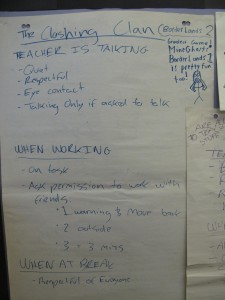 The Clashing Clan (Borderlands 2
Greatest Games
Minecraft!
Borderlands 1
is pretty fun
too!
TEACHER IS TALKING
- Quiet
- Respectful
- Eye contact
- Talking only if asked to talk
WHEN WORKING
- On task
- Ask permission to work with
friends
1 warning & move back
2 outside
3 - 3 mins
WHEN AT BREAK
- Respectful of Everyone